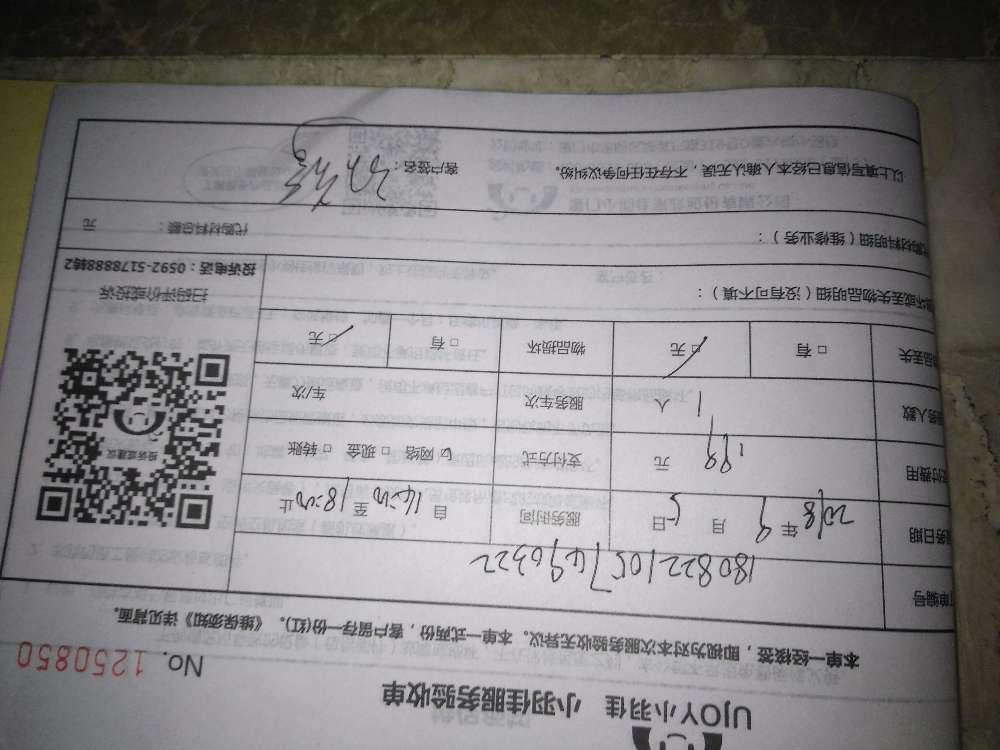 UJOY小羽佳 小羽佳服务验收单
No. 1250850
本单一经核签，即视为对本次服务验收无异议。本单一式两份，客户留存一份(红)。《维保须知》详见背面。
订单编号 18082210574690322
服务日期 2018年9月5日 服务时间 自14:00至18:00止
支付费用 199元 支付方式 ☑网络 □现金 □转账
服务人数 1人 服务车次 车/次
物品丢失 □有 ☑无 物品损坏 □有 ☑无
投诉或建议
扫码评价或投诉
投诉电话：0592-5178888转2
损坏或丢失物品明细（没有可不填）：
代购材料明细（维修业务）： 代购材料总额： 元
以上填写信息已经本人确认无误，不存在任何争议纠纷。 客户签名：